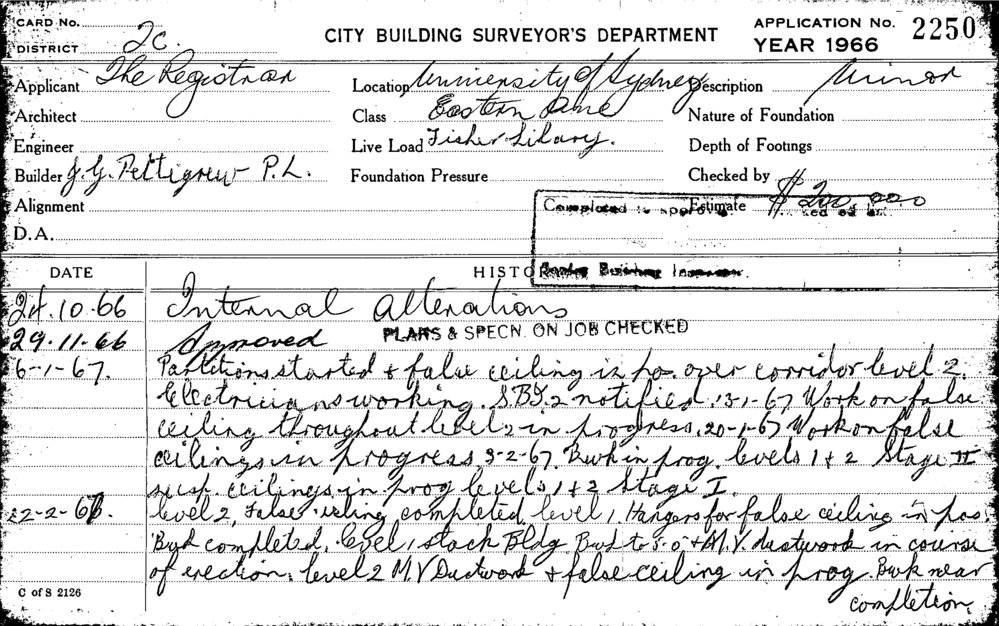 CARD No.
DISTRICT 2C.
CITY BUILDING SURVEYOR'S DEPARTMENT
APPLICATION No. 2250
YEAR 1966
Applicant The Registrar
Location University of Sydney
Description Minor
Architect
Class Eastern Ave
Nature of Foundation
Engineer
Live Load Fisher Library.
Depth of Footings
Builder J. G. Pettigrew P.L.
Foundation Pressure
Checked by
Alignment
Completed
Estimate $ 200,000
D.A.
Building
DATE
HISTO
24.10.66 Internal Alterations
29.11.66 Approved PLANS & SPECN. ON JOB CHECKED
6-1-67. Partitions started & false ceiling in pos. over corridor level 2.
Electricians working. S.B.I.2 notified. 13-1-67 Work on false
ceiling throughout level 2 in progress. 20-1-67 Work on false
ceilings in progress 3-2-67. Bwk in prog. levels 1 + 2 Stage II
susp. ceilings in prog levels 1 + 2 Stage I.
22-2-67. level 2, False ceiling completed. level 1. Hangers for false ceiling in pos
Bwk completed. level 1 stack Bldg. Bwk to 5'-0" + M.V. ductwork in course
of erection. level 2 M V Ductwork + false ceiling in prog. Bwk near
completion.
C of S 2126